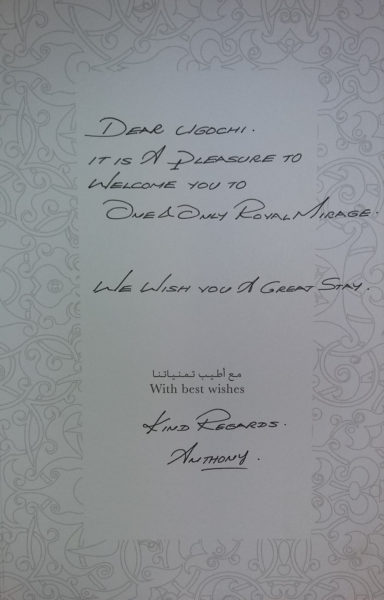 DEAR UGOCHI.
IT IS A PLEASURE TO
WELCOME YOU TO
ONE&ONLY ROYAL MIRAGE.
WE WISH YOU A GREAT STAY.
مع أطيب تمنياتنا
With best wishes
KIND REGARDS.
ANTHONY.